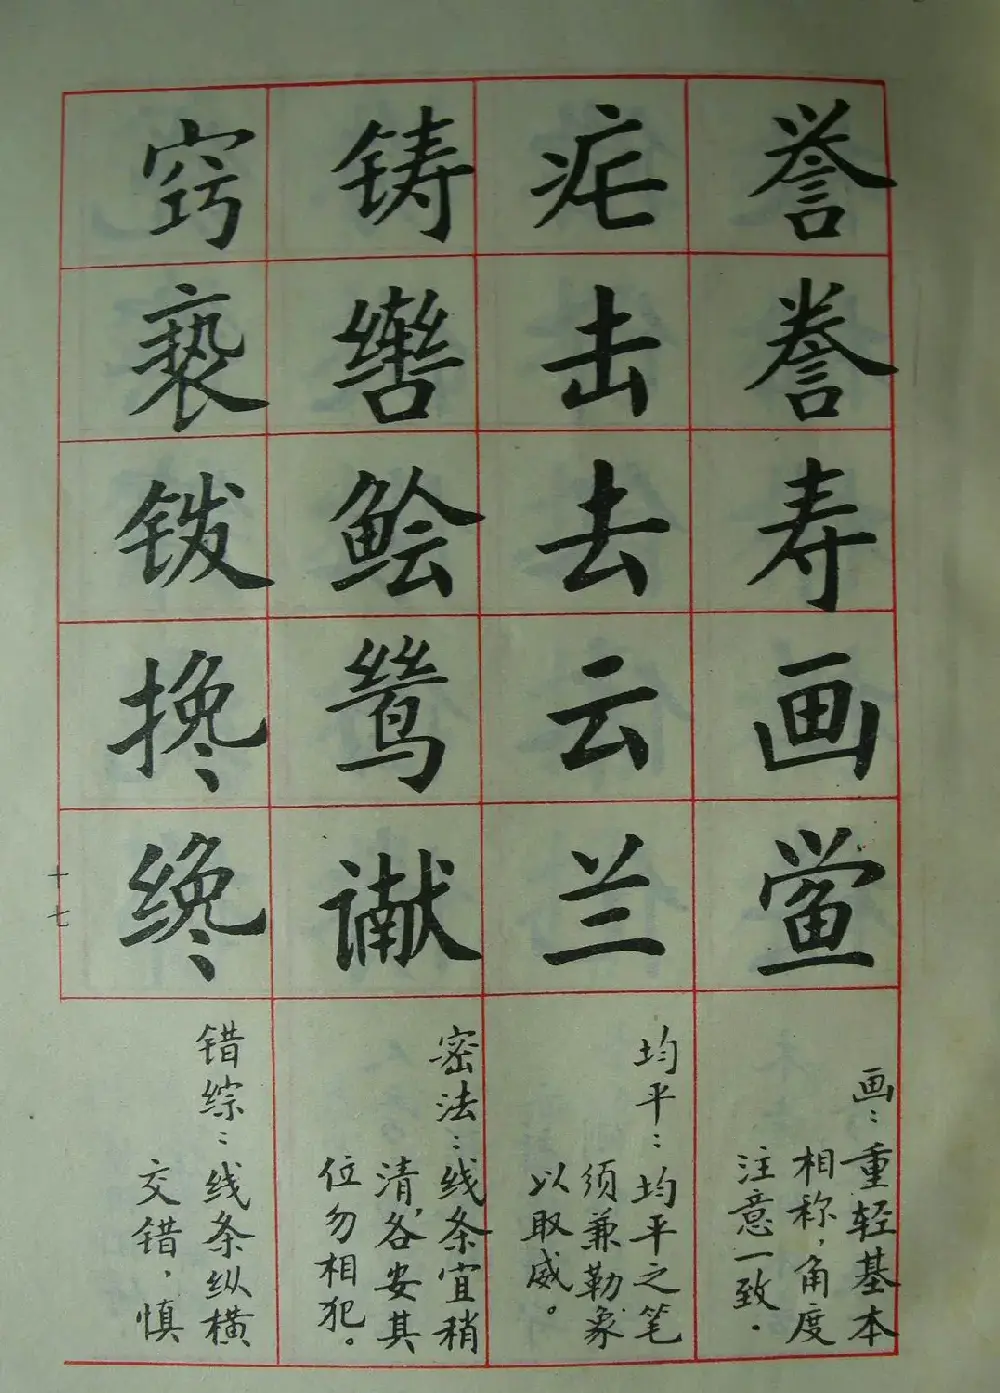 誉
誊
寿
画
鲎
画：重轻基本
相称，角度
注意一致．
击
去
云
兰
均平：均平之笔
须兼勒象
以取威。
铸
辔
鲙
鸶
谳
密法：线条宜稍
清，各安其
位勿相犯。
窍
亵
钹
搀
错综：线条纵横
交错，慎
十七